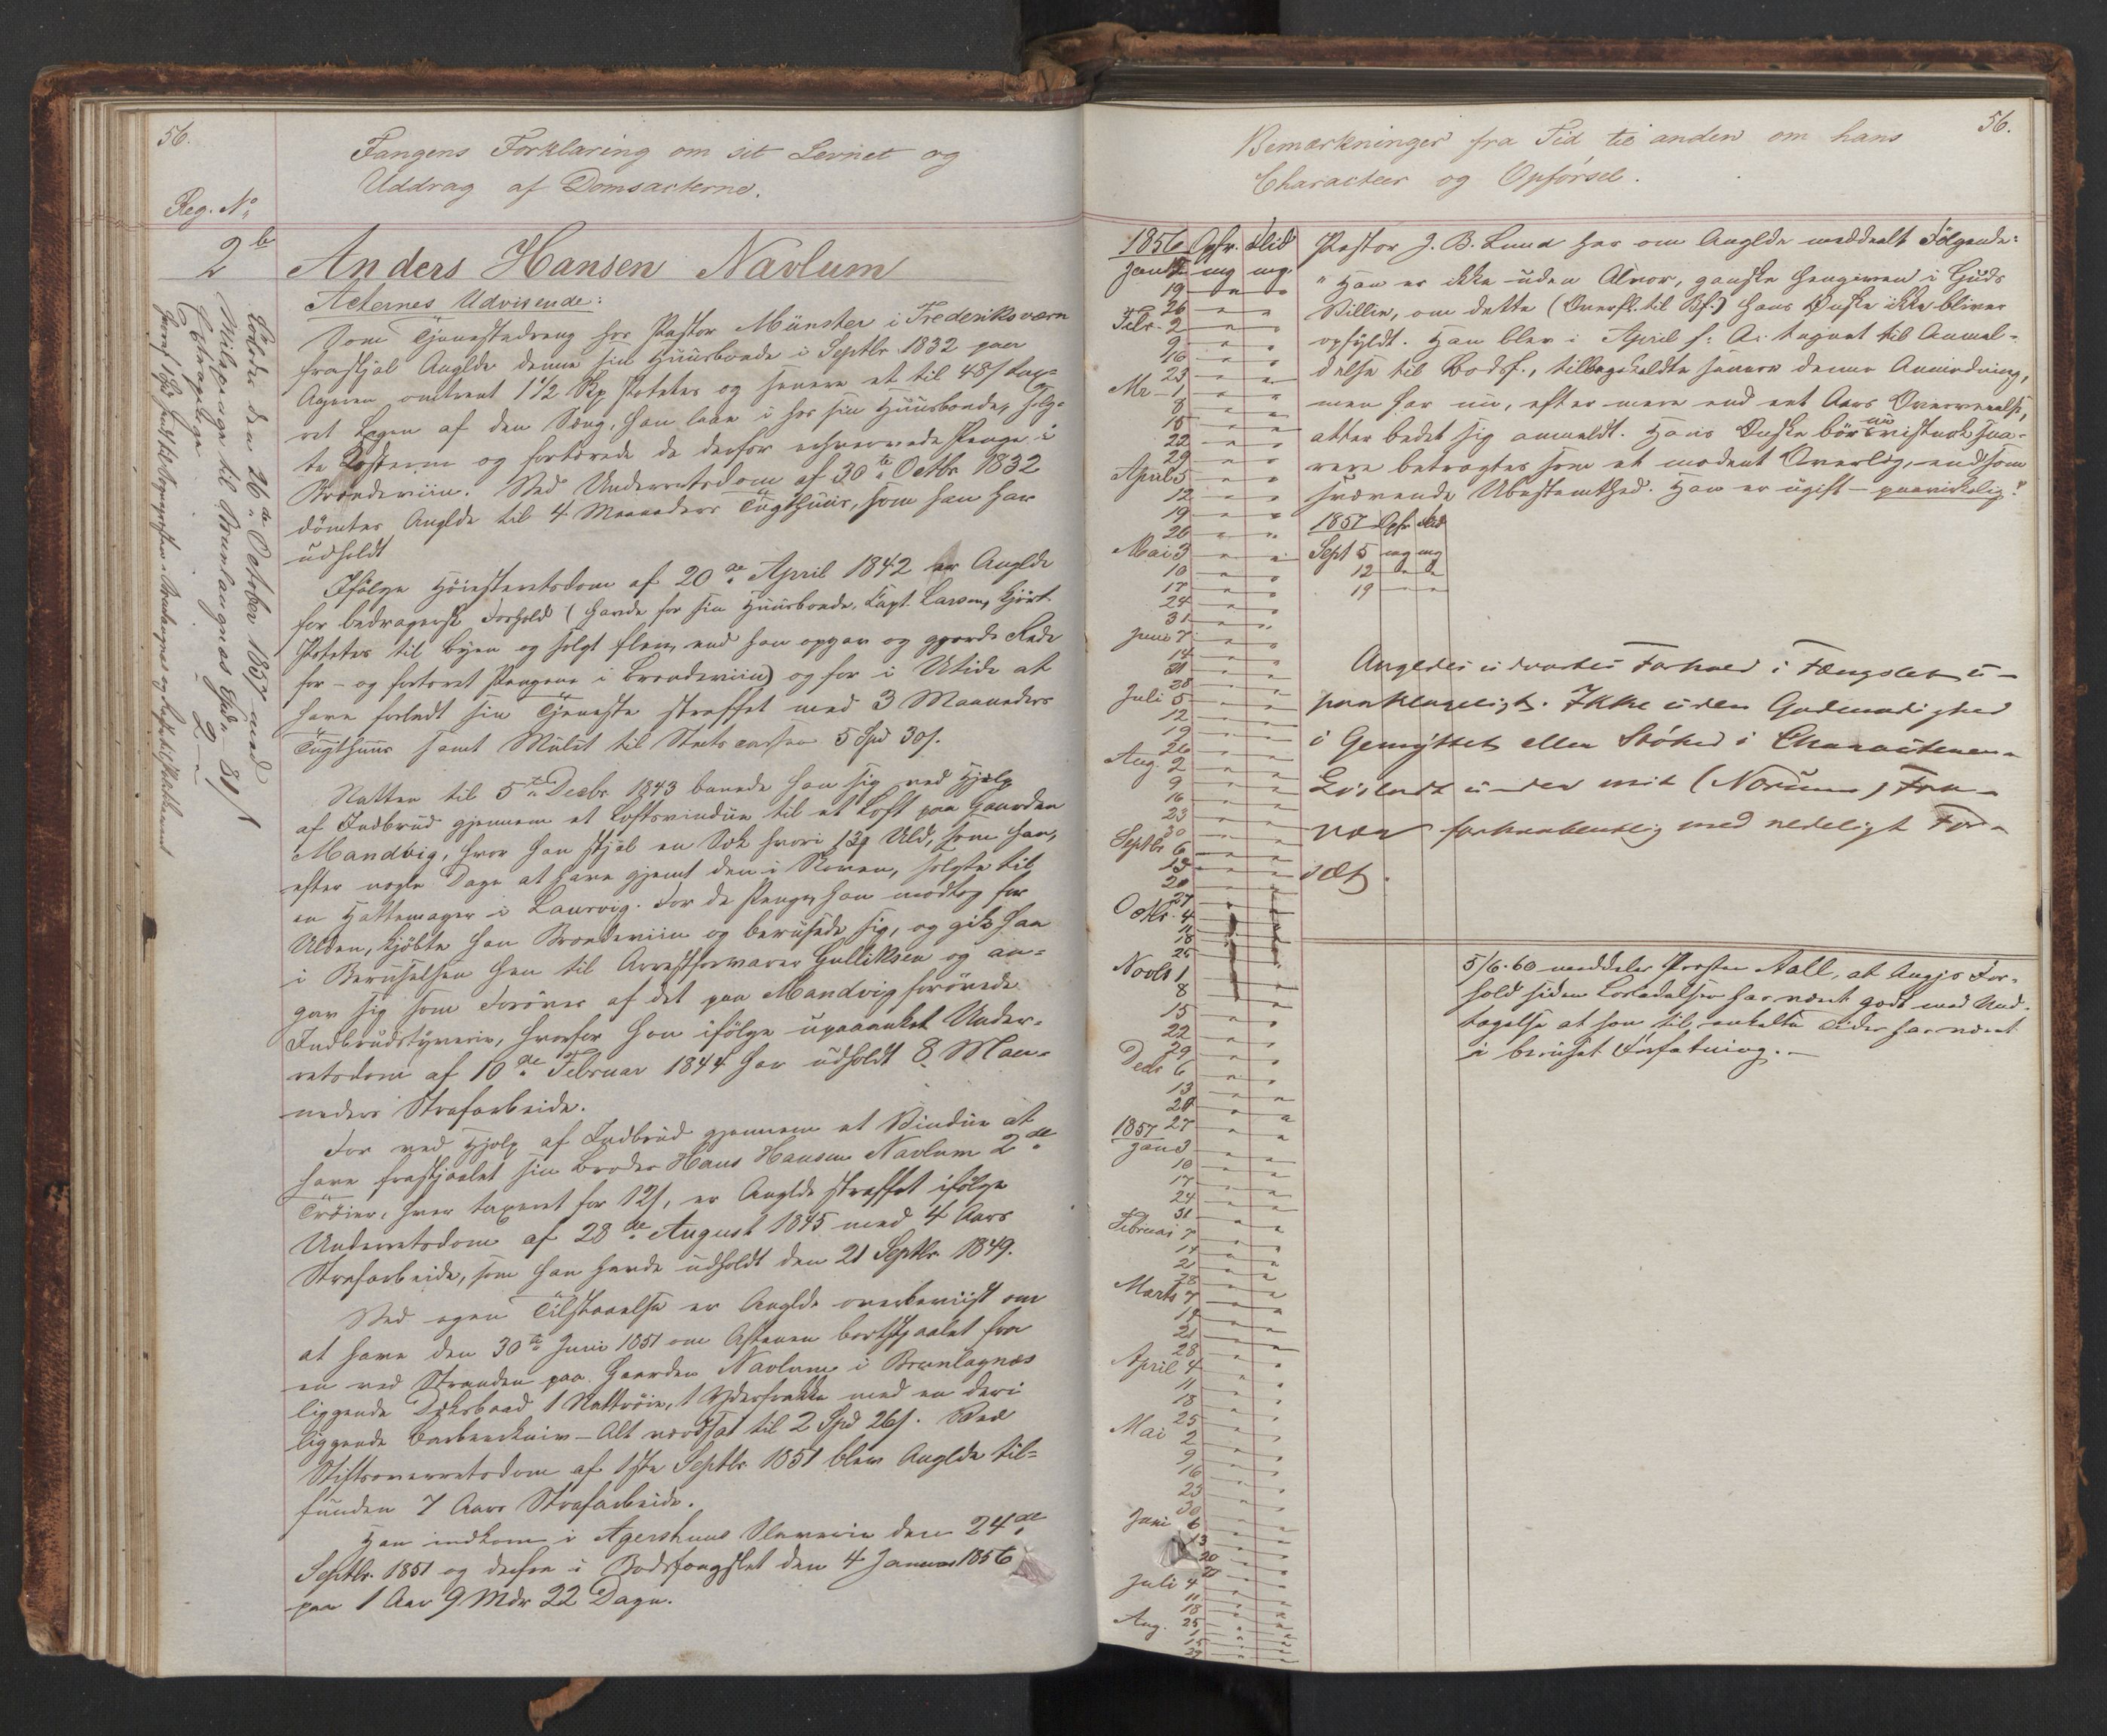 56.
Fangens Forklaring om sit Levnet og
Uddrag af Domsacterne.
Reg. No
2 b
Anders Hansen Navlum
Acternes Udvisende:
Som Tjenestedreng hos Pastor Münster i Frederiksværn
frastjal Anglde denne sin Huusbonde i Septbr. 1832 paa
Ageren omtrent 1 1/2 Skp Poteter og senere et til 48 s taxe=
ret Lagen af den Seng, han laae i hos sin Huusbonde, solg=
te Kosterne og fortærede de derfor erhvervede Penge i
Brændeviin. Ved Underretsdom af 30te Octbr 1832
dømtes Anglde til 4 Maaneders Tugthuus, som han har
udholdt
Ifølge Høiesteretsdom af 20de April 1842 er Anglde
for bedragersk Forhold (havde for sin Huusbonde, Capt. Larsen, kjørt
Poteter til Byen og solgt flere, end han opgav og gjorde Rede
for - og fortæret Pengene i Brændeviin) og for i Utide at
have forladt sin Tjeneste straffet med 3 Maaneders
Tugthuus samt Mulct til Statscassen 5 Spd 30 s.
Natten til 5te Decbr 1843 banede han sig ved Hjelp
af Indbrud gjennem et Loftsvindue til et Loft paa Gaarden
Mandvig, hvor han stjal en Sæk hvori 13 p Uld, som han,
efter nogle Dage at have gjemt den i Skoven, solgte til
en Hattemager i Laurvig. For de Penge, han modtog for
Ulden, kjøbte han Brændeviin og berusede sig, og gik han
i Beruselsen hen til Arrestforvarer Gulliksen og an=
gav sig som Forøver af det paa Mandvig forøvede
Indbrudstyverie, hvorfor han ifølge upaaanket Under=
retsdom af 10de Februar 1844 har udholdt 8 Maa=
neders Strafarbeide.
For ved Hjelp af Indbrud gjennem et Vindue at
have frastjaalet sin Broder Hans Hansen Navlum 2de
Trøier, hver taxeret for 12 s, er Anglde straffet ifølge
Underretsdom af 28de August 1845 med 4 Aars
Strafarbeide, som han havde udholdt den 21 Septbr 1849.
Ved egen Tilstaaelse er Anglde overbeviist om
at have den 30te Juni 1851 om Aftenen bortstjaalet fra
en ved Stranden paa Gaarden Navlum i Brunlagnæs
liggende Dæksbaad 1 Nattrøie, 1 Yderfrakke med en deri
liggende Barbeerkniv - Alt værdsat til 2 Spd 26 s. Ved
Stiftsoverretsdom af 1ste Septbr 1851 blev Anglde til=
funden 7 Aars Strafarbeide.
Han indkom i Agershuus Slaverie den 24de
Septbr. 1851 og derfra i Bodsfængslet den 4 Januar 1856
paa 1 Aar 9 Mdr 22 Dage.
Løslades den 26de October 1857 med
Milepenge til Brunlaugnæs
56.
Bemærkninger fra Tid til anden om hans
Characteer og Opførsel.
1856 Opfr. Flid
Jan 12 mg mg.
19 " "
26 " "
Febr. 2 " "
9 " "
16 " "
23 " "
Mr - 1 " "
8 " "
15 " "
22 " "
29 " "
April 5 " "
12 " "
19 " "
26 " "
Mai 3 " "
10 " "
17 " "
24 " "
31 " "
Juni 7 " "
14 " "
21 " "
28 " "
Juli 5 " "
12 " "
19 " "
26 " "
Aug. 2 " "
9 " "
16 " "
23 " "
30 " "
Septbr 6 " "
13 " "
20 " "
27 " "
Octbr. 4 " "
11 " "
18 " "
25 " "
Novbr 1 " "
8 " "
15 " "
22 " "
29 " "
Decbr 6 " "
13 " "
20 " "
27 " "
1857
Jan 3 " "
10 " "
17 " "
24 " "
31 " "
Februar 7 " "
14 " "
21 " "
28 " "
Marts 7 " "
14 " "
21 " "
28 " "
April 4 " "
11 " "
18 " "
25 " "
Mai 2 " "
9 " "
16 " "
23 " "
30 " "
Juni 6 " "
13 " "
20 " "
27 " "
Juli 4 " "
11 " "
18 " "
25 " "
Aug. 1 " "
15 " "
Pastor J. B. Lund har om Anglde meddeelt Følgende:
" Han er ikke uden Alvor, ganske hengiven i Guds
Villie, om dette (Overfl. til Bf.) hans Ønske ikke bliver
opfyldt. Han blev i April f: A: tegnet til Anmel=
delse til Bodsf., tilbagekaldte senere denne Anmodning,
men har nu, efter mere end eet Aars Overveielse,
atter bedet sig anmeldt. Hans Ønske bør nu vistnok sna=
rere betragtes som et modent Overlæg, end som
svævende Ubestemthed. Han er ugift - paavirkelig."
1857 Opfr Flid
Sept 5 mg mg
12 " "
19 " "
Angldes udvortes Forhold i Fængslet u-
paaklageligt. Ikke uden Godmodighed
i Gemyttet eller Stöhed i Characteren.
Løsladt under mit (Norum) Fra-
vær forhaabentlig med redeligt For-
sæt.
5/6.60 meddeler Provsten Aall, at Angjs For-
hold siden Løsladelsen har været godt med Und-
tagelse at han til enkelte Tider har været
i beruset Forfatning. -